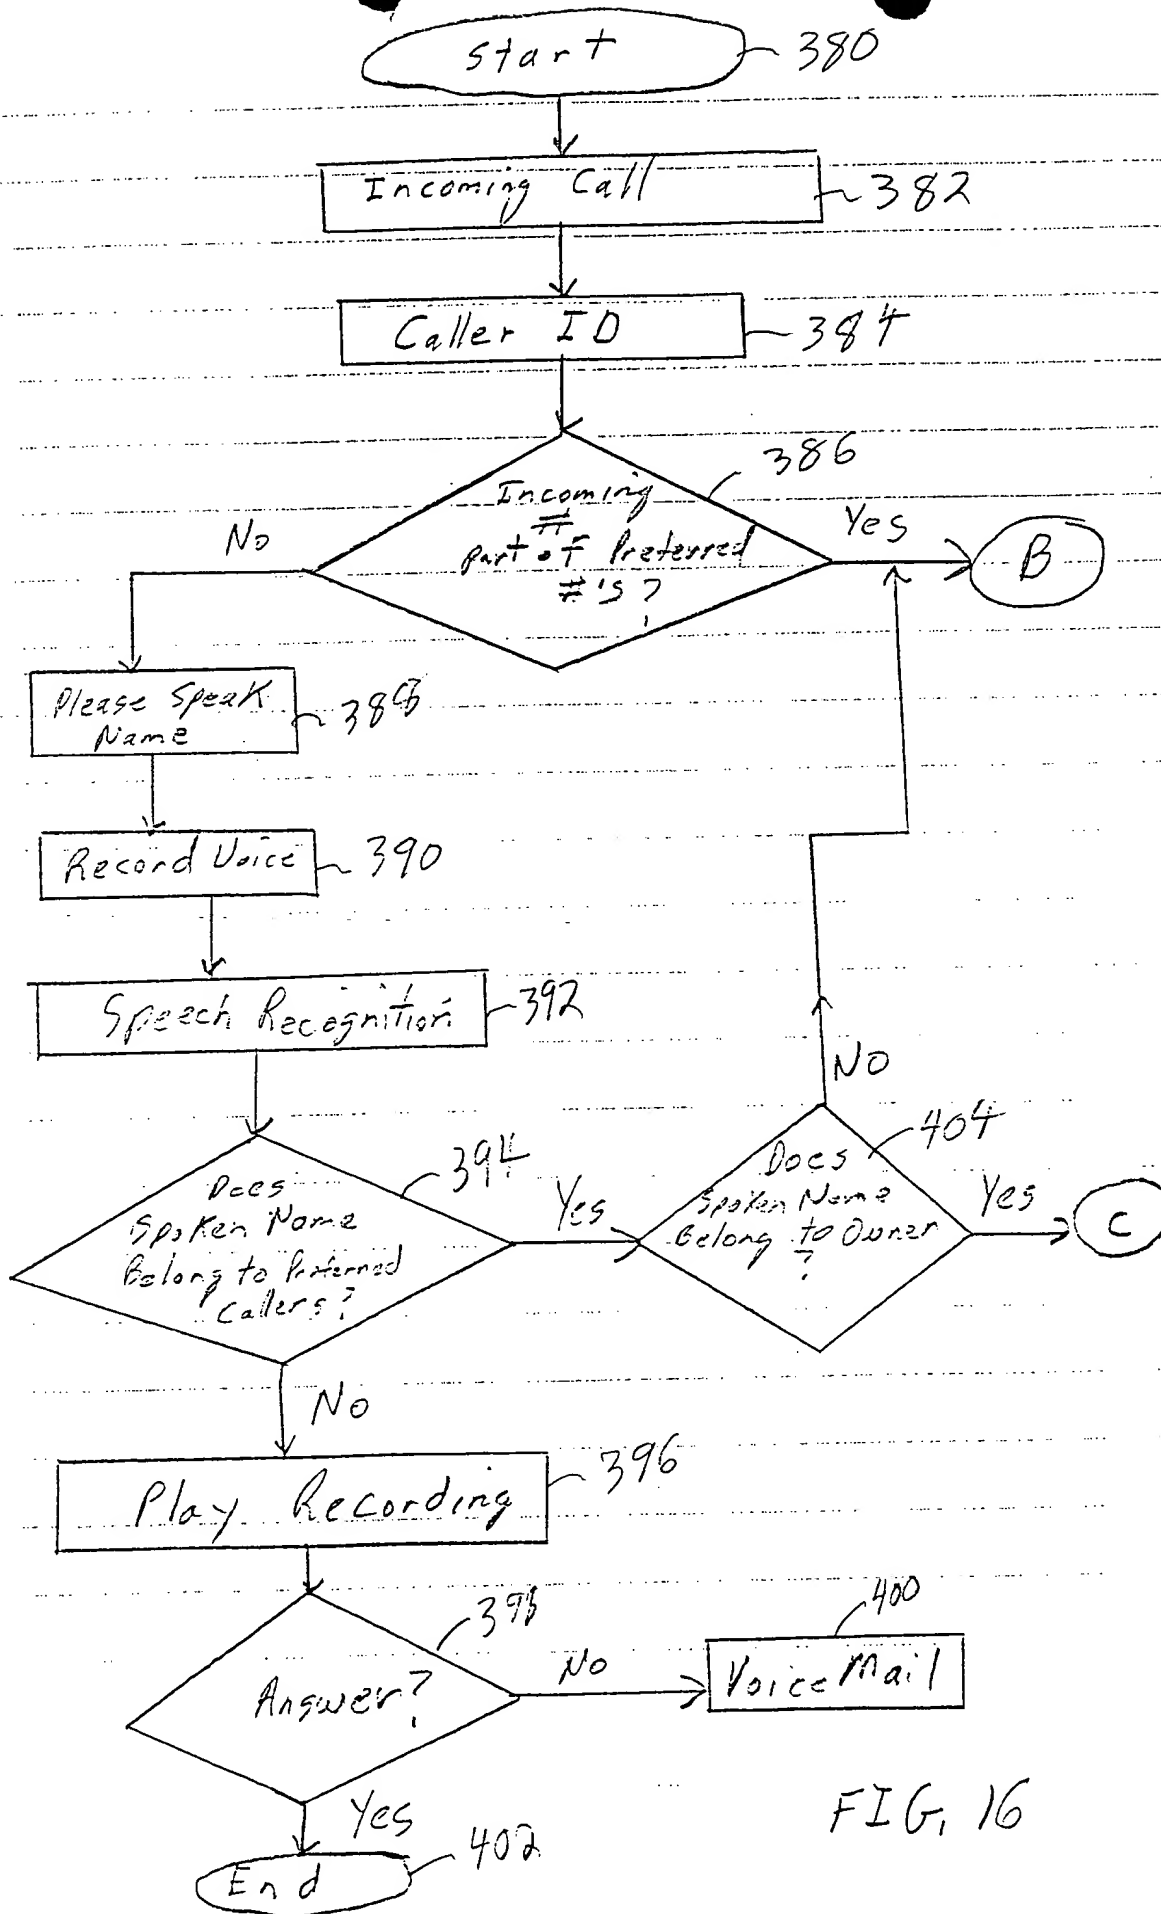 Start
380
Incoming Call
382
Caller ID
384
386
Incoming
#
part of Preferred
#'s?
No
Yes
B
Please Speak
Name
388
Record Voice
390
Speech Recognition
392
No
394
Does
Spoken Name
Belong to Preferred
Callers?
Yes
404
Does
Spoken Name
Belong to Owner
?
Yes
C
No
Play Recording
396
398
Answer?
No
400
Voice Mail
Yes
End
402
FIG. 16